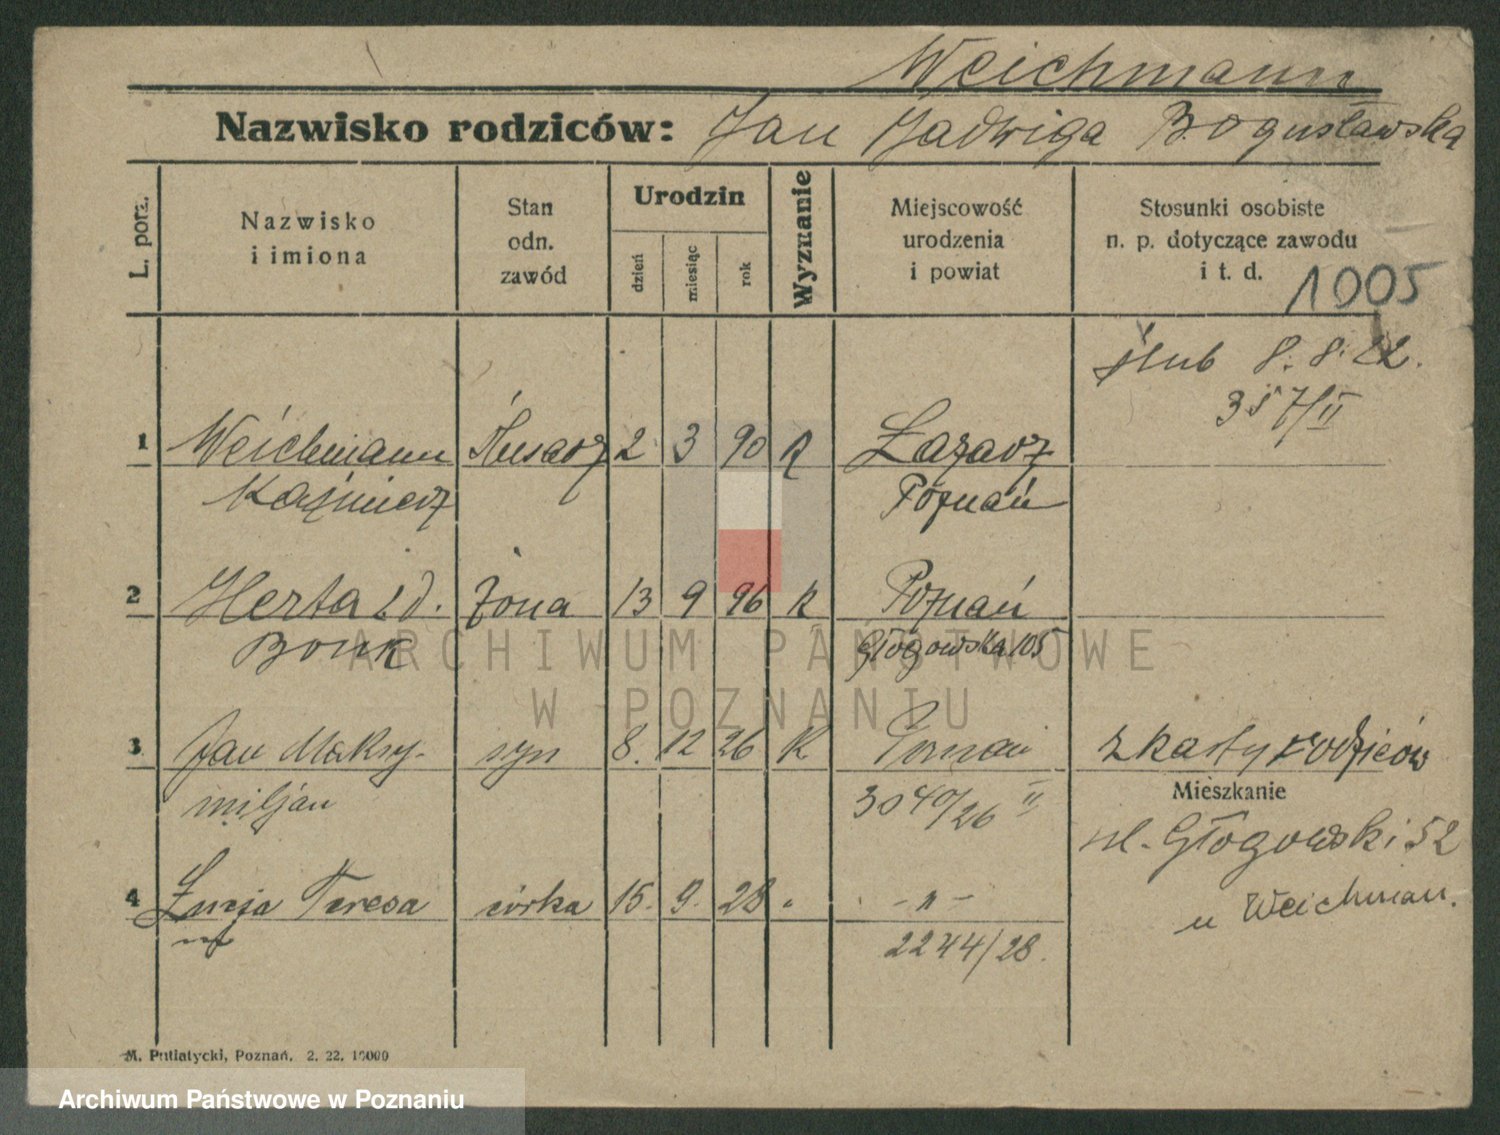 Weichmann
Nazwisko rodziców: Jan Jadwiga Bogusławska
L. porz.
Nazwisko
i imiona
Stan
odn.
zawód
Urodzin
dzień
miesiąc
rok
Wyznanie
Miejscowość
urodzenia
i powiat
Stosunki osobiste
n. p. dotyczące zawodu
i t. d.
1005
ślub 8. 8. 22.
357/II
1 Weichmann Ślusarz 2 3 90 R Łazarz
Kaźmierz Poznań
2 Herta zd. żona 13 9 96 R Poznań
Bonk Głogowska 105
3 Jan Maksy- syn 8. 12 26 R Poznań z karty rodziców
miljan 3040/26 II
Mieszkanie
ul. Głogowski 52
u Weichman.
4 Łucja Teresa córka 15. 9. 28 " - " -
2244/28.
M. Putiatycki, Poznań. 2. 22. 10000
ARCHIWUM PAŃSTWOWE
W POZNANIU
Archiwum Państwowe w Poznaniu